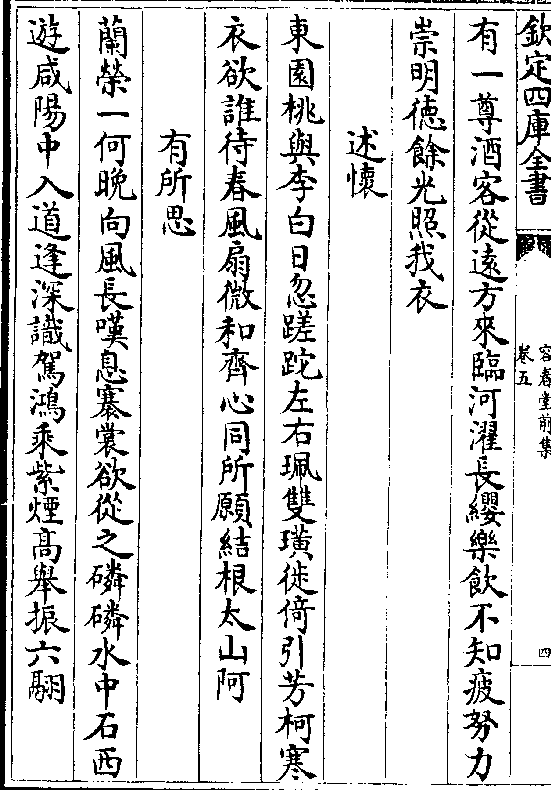 欽定四庫全書
容春堂前集
卷五
四
有一尊酒客從遠方來臨河濯長纓樂飲不知疲努力
崇明徳餘光照我衣
述懷
東園桃與李白日忽蹉跎左右珮雙璜徙倚引芳柯寒
衣欲誰待春風扇微和齊心同所願結根太山阿
有所思
蘭榮一何晚向風長嘆息褰裳欲從之磷磷水中石西
遊咸陽中入道逢深識駕鴻乘紫煙髙舉振六翮